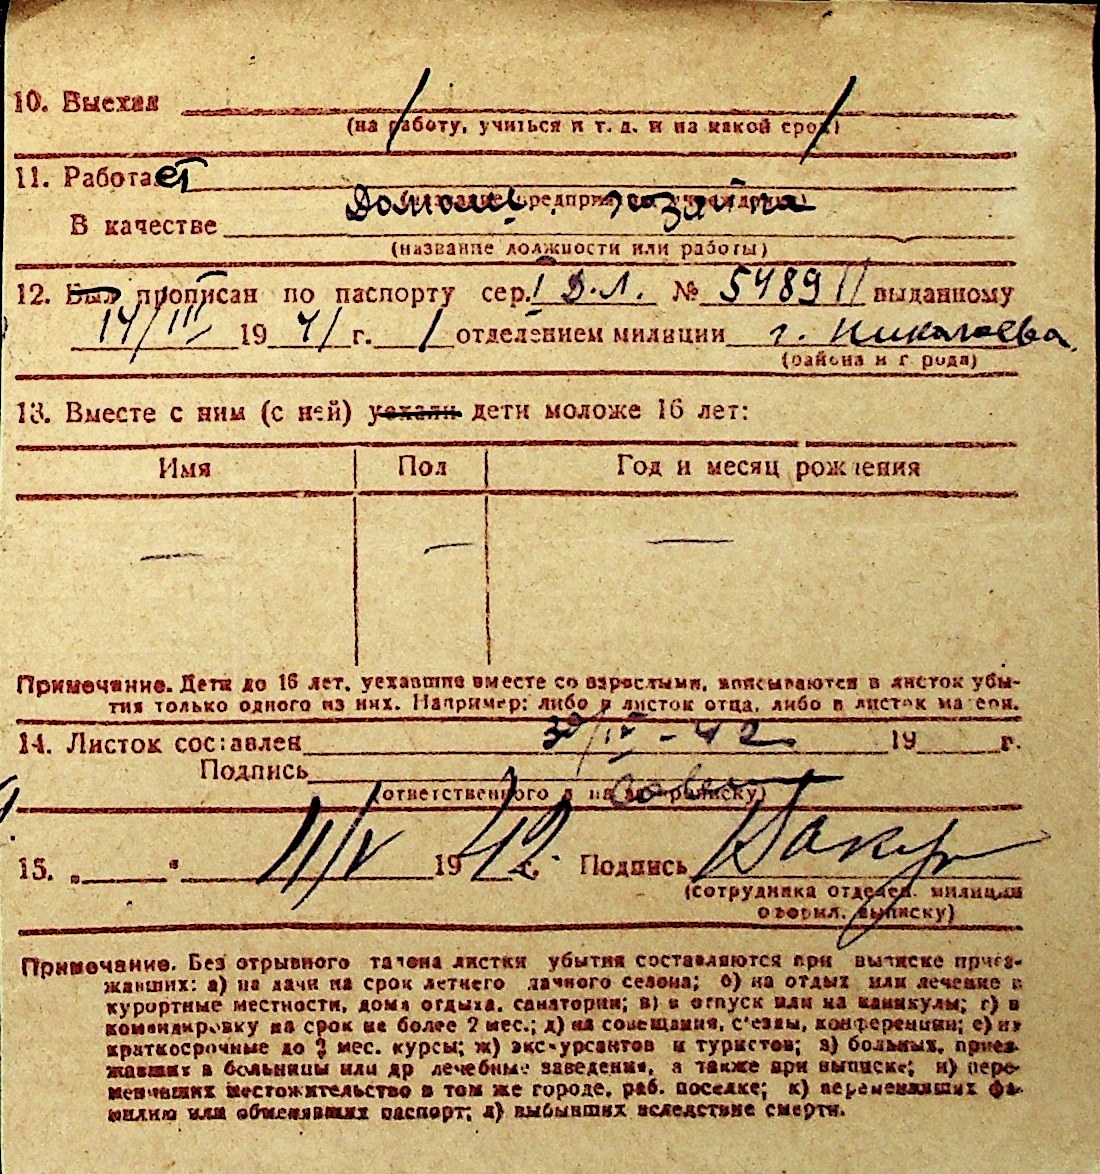 10. Выехал
(на работу, учиться и т. д. и на какой срок)
11. Работает
(название предприятия, учреждения)
Домаш. хозяйка
В качестве
(название должности или работы)
12. Был прописан по паспорту сер. I Д.Л. № 548911 выданному
14/III 1941 г. 1 отделением милиции г. Николаева
(района и города)
13. Вместе с ним (с ней) уехали дети моложе 16 лет:
Имя Пол Год и месяц рождения
— — —
Примечание. Дети до 16 лет, уехавшие вместе со взрослыми, вписываются в листок убы-
тия только одного из них. Например: либо в листок отца, либо в листок матери.
14. Листок составлен 30/IV - 42 19 г.
Подпись
(ответственного за прописку)
15. „ “ 11/V 1942 г. Подпись
(сотрудника отделен. милиции
оформл. выписку)
Примечание. Без отрывного талона листки убытия составляются при выписке приез-
жавших: а) на дачи на срок летнего дачного сезона; б) на отдых или лечение в
курортные местности, дома отдыха, санатории; в) в отпуск или на каникулы; г) в
командировку на срок не более 2 мес.; д) на совещания, с'езды, конференции; е) на
краткосрочные до 3 мес. курсы; ж) экскурсантов и туристов; з) больных, приез-
жавших в больницы или др лечебные заведения, а также при выписке; и) пере-
менивших местожительство в том же городе, раб. поселке; к) переменивших фа-
милию или обменявших паспорт; л) выбывших вследствие смерти.